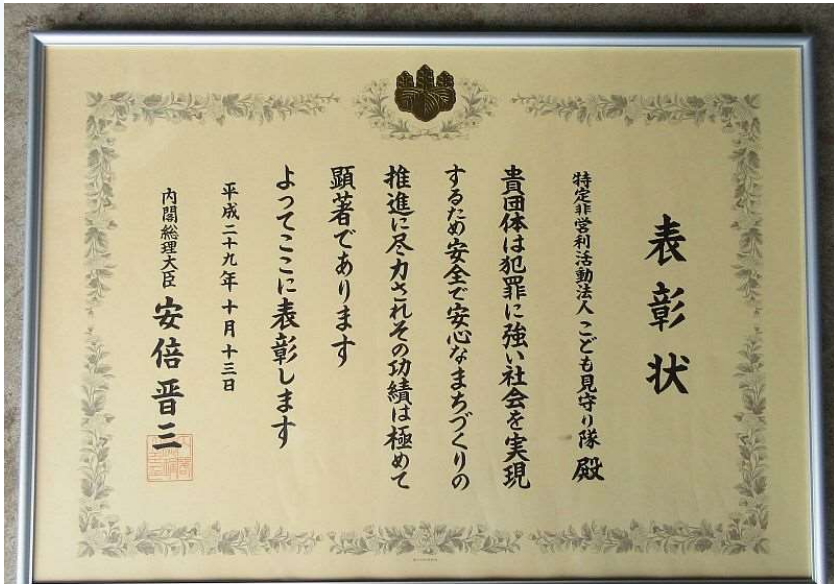 表彰状
特定非営利活動法人こども見守り隊 殿
貴団体は犯罪に強い社会を実現
するため安全で安心なまちづくりの
推進に尽力されその功績は極めて
顕著であります
よってここに表彰します
平成二十九年十月十三日
内閣総理大臣 安倍晋三